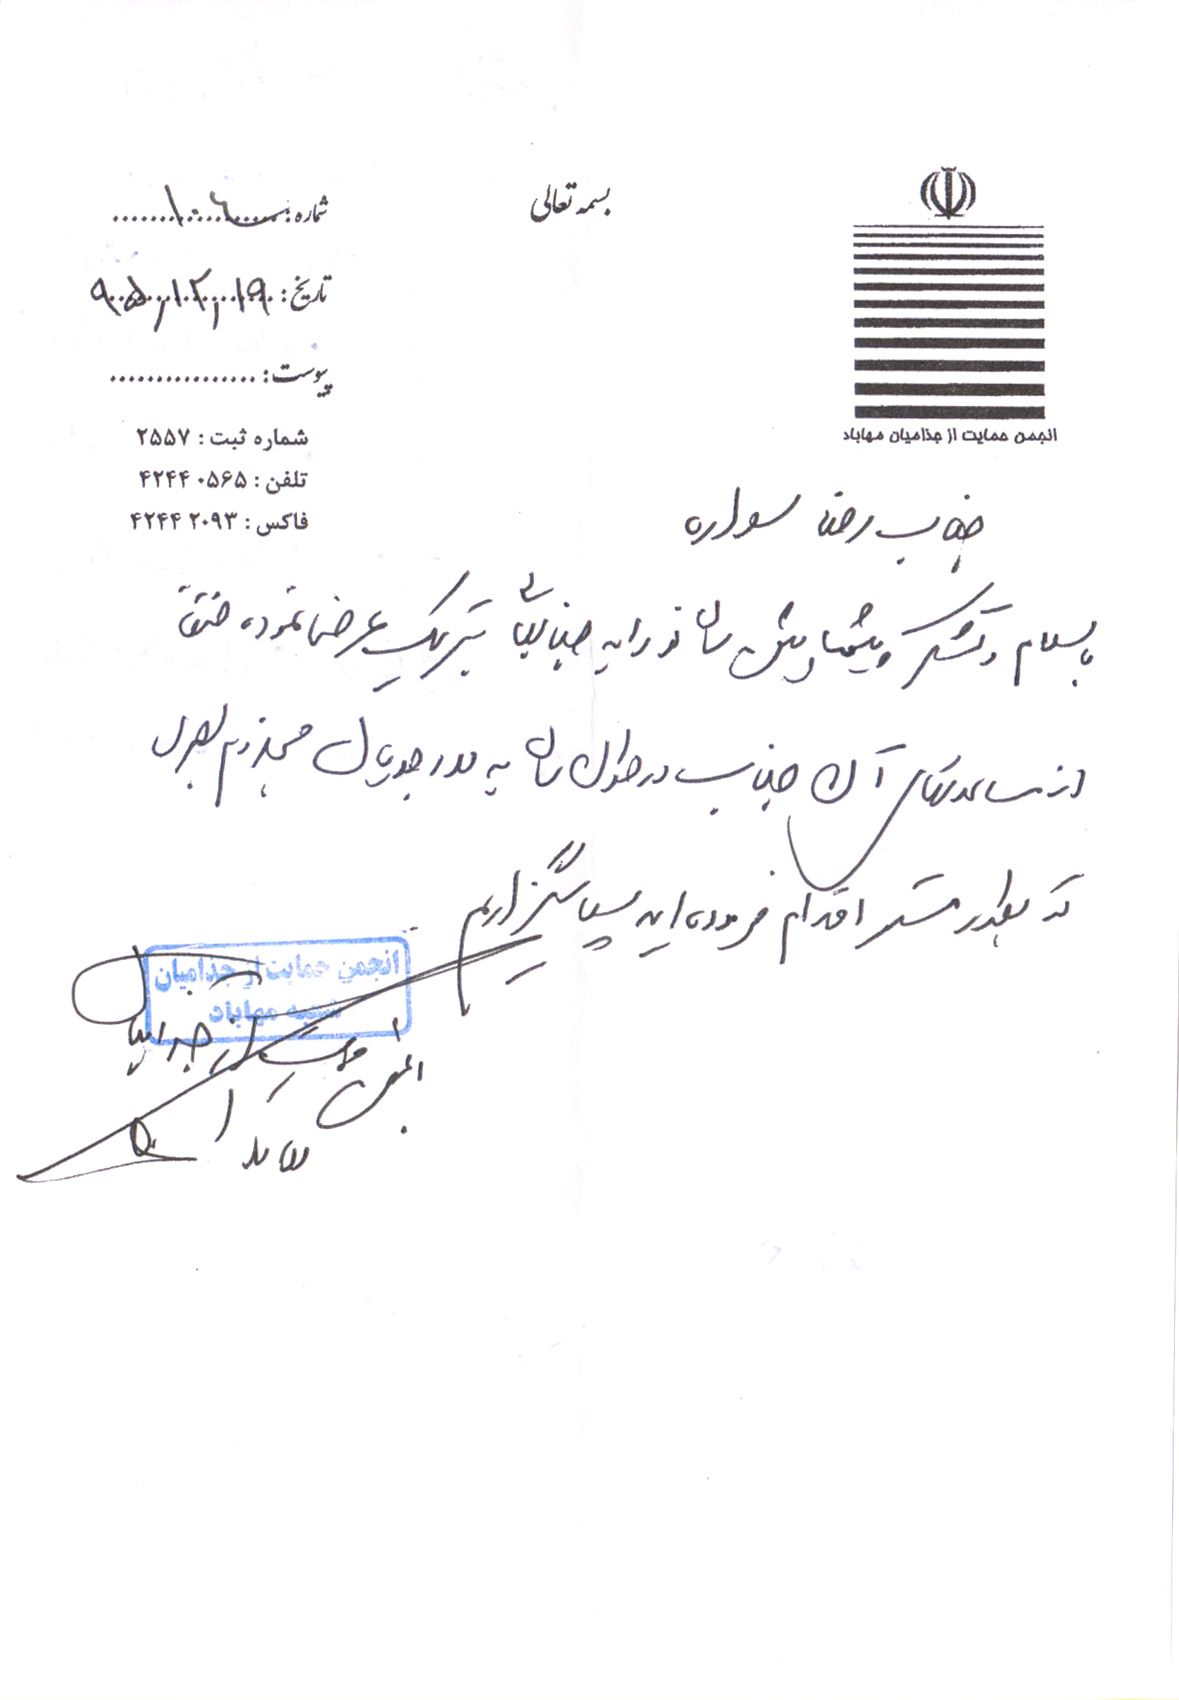 بسمه تعالی
شماره: ۱۰۶
تاریخ: ۹۵/۱۲/۱۹
پیوست: ................
شماره ثبت : ۲۵۵۷
تلفن : ۴۲۴۴۰۵۶۵
فاکس : ۴۲۴۴۲۰۹۳
انجمن حمایت از جذامیان مهاباد
جناب رضا سواره
باسلام و تشکر پیشاپیش سال نو را به جنابعالی تبریک عرض نموده ضمناً
از مساعدتهای آن جناب در طول سال به مددجویان مجذوم
که بطور مستمر اقدام فرموده اید سپاسگزاریم
انجمن حمایت از جذامیان
شعبه مهاباد
انجمن حمایت از جذامیان
مهاباد